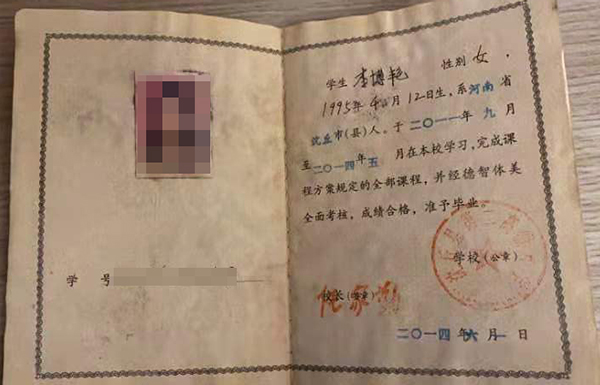 学生 李博艳 性别 女，
1995年 月12日生，系河南省
沈丘市(县)人。于二〇一一年九月
至二〇一四年五月在本校学习，完成课
程方案规定的全部课程，并经德智体美
全面考核，成绩合格，准予毕业。
学校(公章)
学号
校长(签章)
二〇一四年六月一日